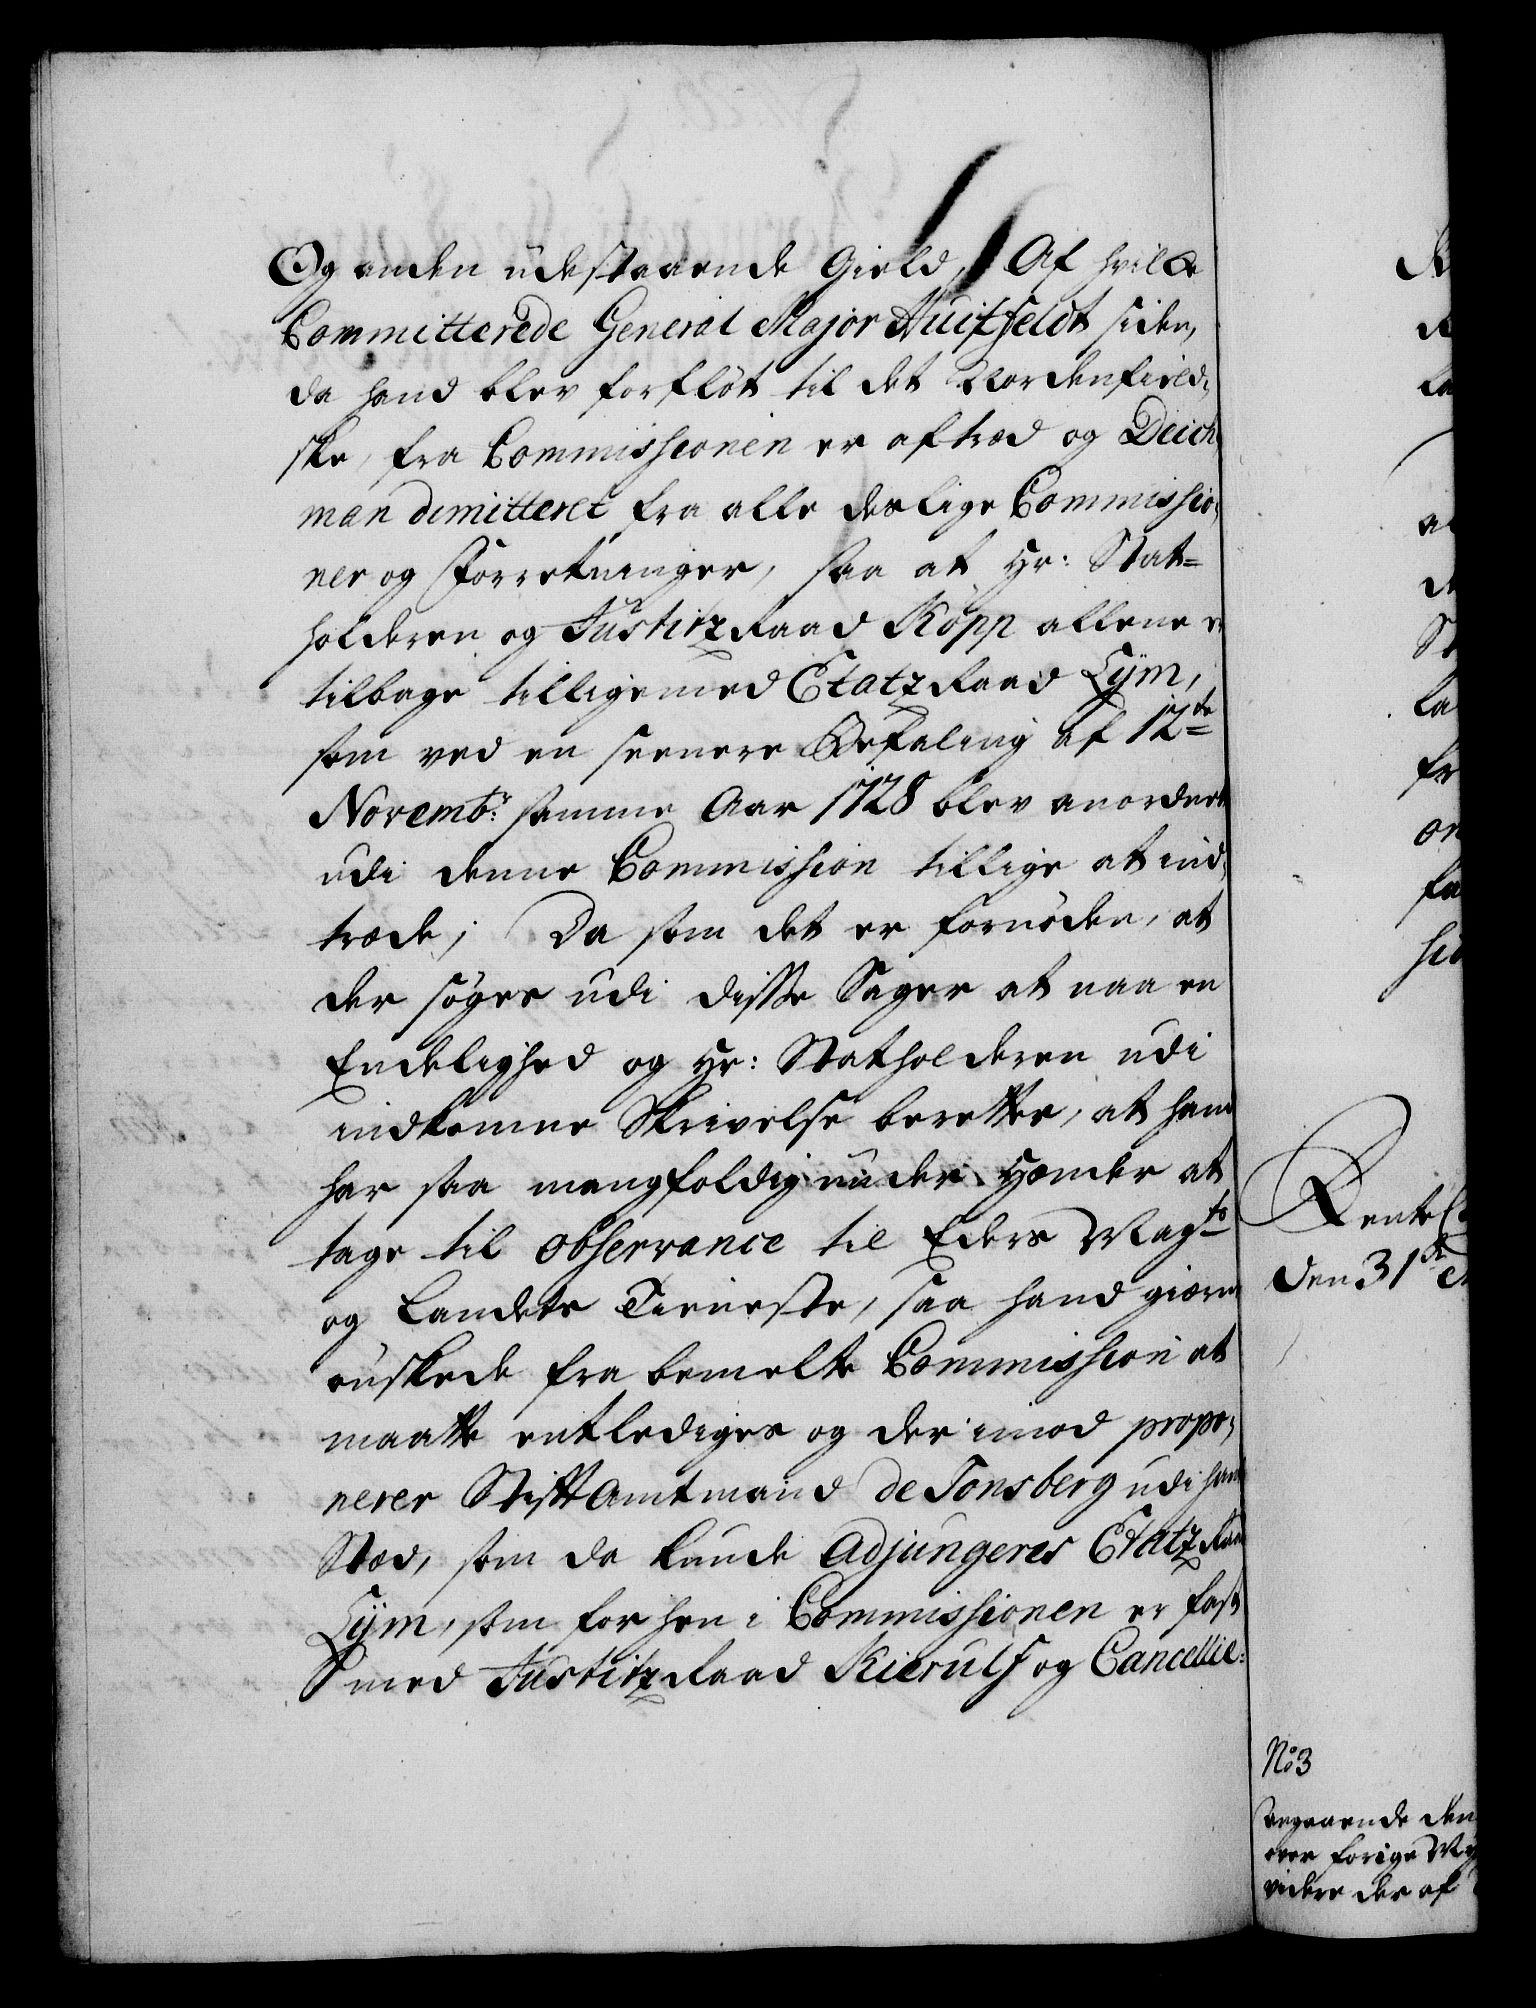 Og anden udestaaende Gield, Af hvilke
Committerede General Major Huitfeldt siden,
da hand blev forflöt til det Nordenfield,
ske, fra Commissionen er aftræd og Deich,
man dimitteret fra alle deslige Commissio,
ner og Forretninger, saa at Hr: Stat=
holderen og Justitz Raad Köpp allene er
tilbage tilligemed Etatz Raad Lÿm,
som ved en seenere Befaling af 12te
Novembr: samme Aar 1728 blev anordnet
udi denne Commission tillige at ind,
træde; Da som det er fornöden, at
der söges udi disse Sager at naa en
Endelighed og Hr: Statholderen udi
indkomne Skrivelse beretter, at hand
har saa mangfoldig under Hænder at
tage til observance til Eders Mayts
og Landets Tieneste, saa hand gierne
ønskede fra bemelte Commission at
maatte entlediges og der imod propo,
nerer Stift Amtmand de Tonsberg udi hans
Stæd, som da kunde Adjungeres Etatz Raad
Lÿm, som forhen i Commissionen er fast
med Justitz Raad Kierulf og Cancellie:
Rente
Den 31te
No 3
angaaende den
over forige
videre der af